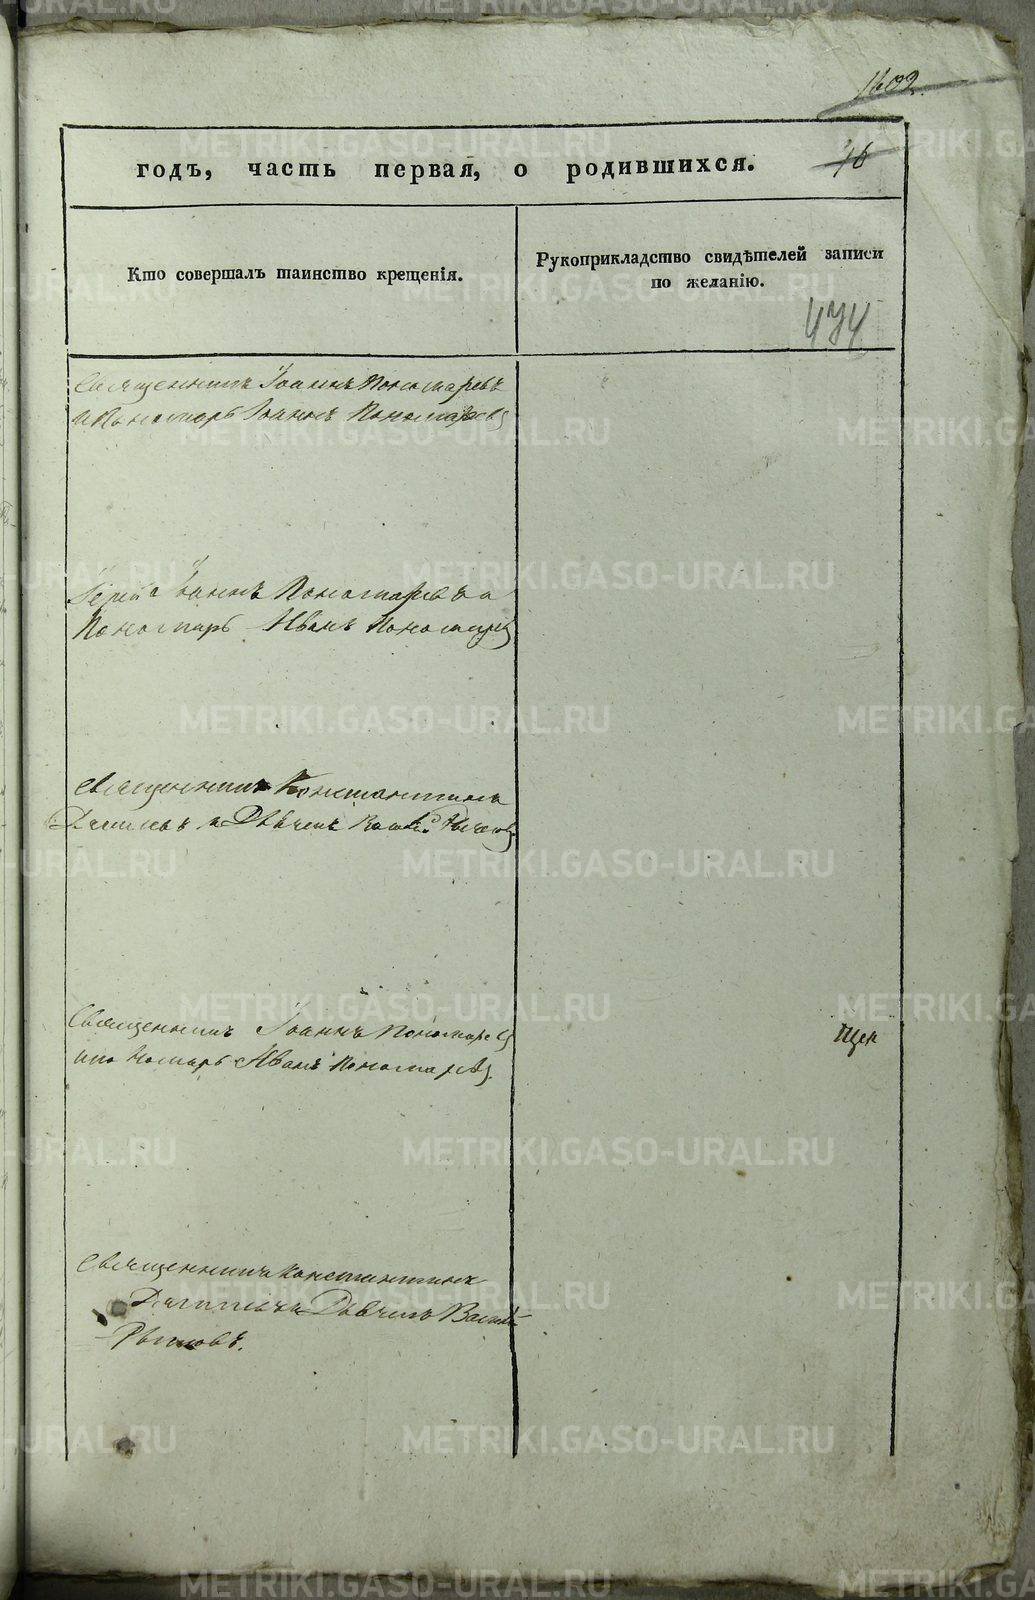 1602.
годъ, часть первая, о родившихся.
46
Кто совершалъ таинство крещенія.
Рукоприкладство свидѣтелей записи
по желанію.
474
Священникъ Іоаннъ Пономаревъ
и Пономарь Іоаннъ Пономаревъ
Іерей Іоаннъ Пономаревъ и
Пономарь Иванъ Пономаревъ
Священникъ Константинъ
и Дьячекъ
Священникъ Іоаннъ Пономаревъ
и пономарь Иванъ Пономаревъ
Щек
Священникъ Константинъ
Дягилевъ и Дьячекъ Василій
Рычковъ.
METRIKI.GASO-URAL.RU